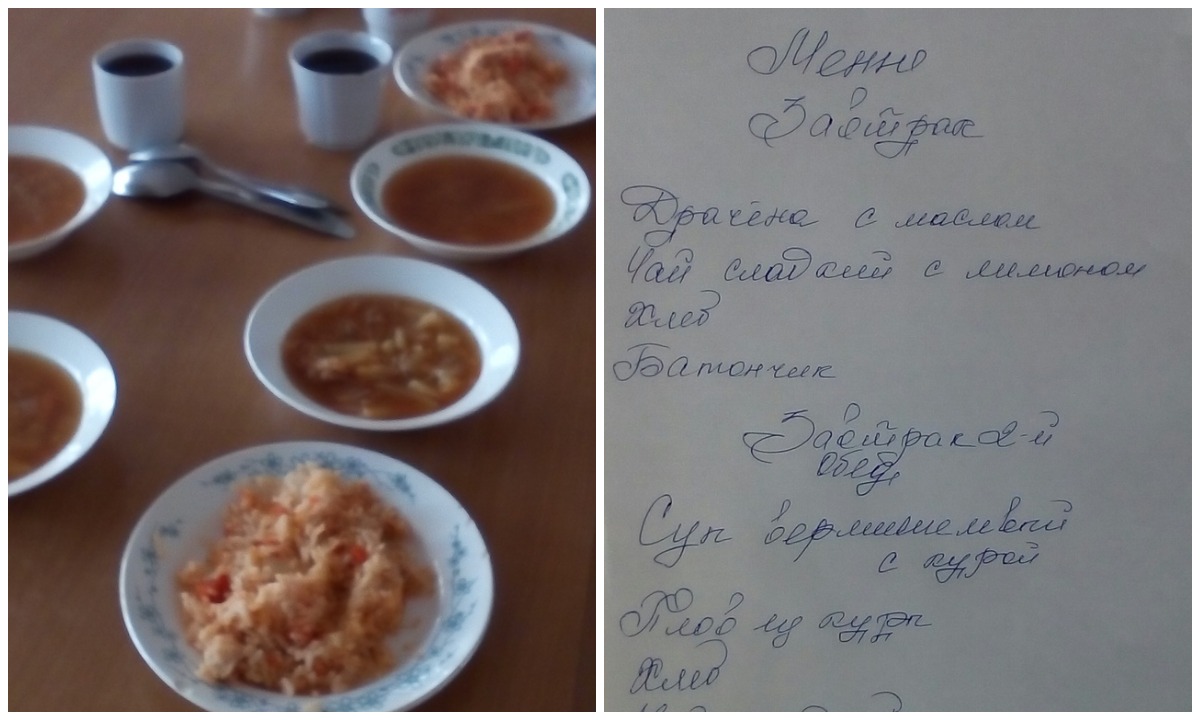 Меню
Завтрак
Драчёна с маслом
Чай сладкий с лимоном
Хлеб
Батончик
Завтрак 2-й
Обед
Суп вермишелевый
с курой
Плов из куры
Хлеб